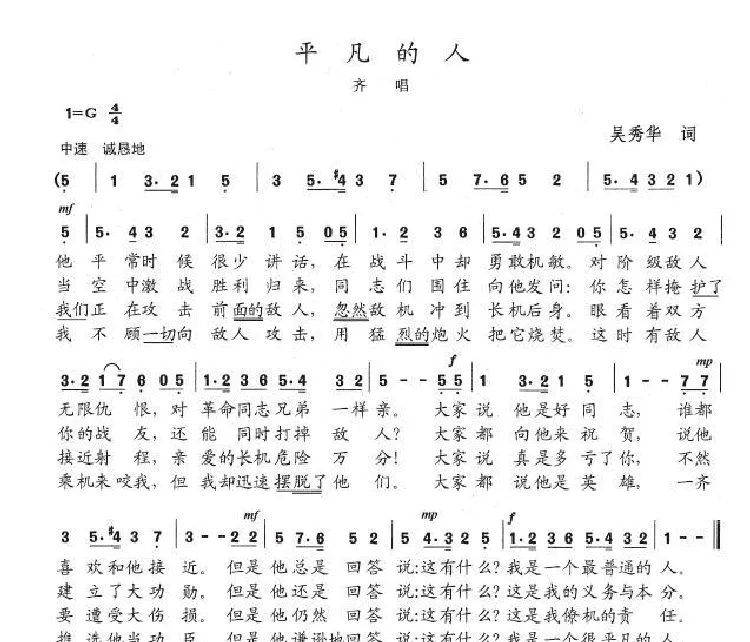 平凡的人
齐 唱
1=G 4/4
吴秀华 词
中速 诚恳地
(5 | 1 3·2 1 5 | 3 5·#4 3 7 | 5 7·6 5 2 | 5·4 3 2 1)
mf
5 | 5· 4 3 2 | 3·2 1 5 0 5 | 1· 2 3 6 | 5·4 3 2 0 5 | 5·4 3 2
他 平 常时 候 很少 讲话, 在 战斗 中却 勇敢机敏。对 阶级敌人
当 空 中激 战 胜利 归来, 同 志们 围住 向他发问: 你 怎样掩护了
我们正 在攻 击 前面的敌人, 忽然敌机 冲到 长机后身。眼 看着双方
我 不 顾一切向 敌人 攻击, 用 猛 烈的炮火 把它烧焚。这 时有敌人
f mp
3·2 1 7 6 0 5 | 1·2 3 6 5·4 3 2 | 5 - - 5 5 | 1 3·2 1 5 | 1 - - 7 7
无限仇 恨, 对 革命同志兄弟 一样 亲。 大家 说 他是好 同 志, 谁都
你的战 友, 还 能 同时打掉 敌 人? 大家 都 向他来 祝 贺, 说他
接近射 程, 亲 爱的长机危险 万 分! 大家 说 真是多 亏了你, 不然
乘机来咬我, 但 我却迅速摆脱了他 们。 大家 都 说他是 英雄, 一齐
mf mp f
3 5·#4 3 7 | 3 - - 2 2 | 5 7·6 5 2 | 5 4·3 2 5 | 1·2 3 6 5·4 3 2 | 1 - - ‖
喜 欢和他 接 近。 但是 他 总是 回答 说:这有什么? 我是一个最 普通的 人。
建 立了大 功 勋。 但是 他 还是 回答 说:这有什么? 这是我的义务与本 分。
要 遭受大 伤 损。 但是 他 仍然 回答 说:这有什么? 这是我僚机的责 任。
推 选他当 功 臣。 但是 他 谦逊地回答 说:这有什么? 我是一个很 平凡的 人。